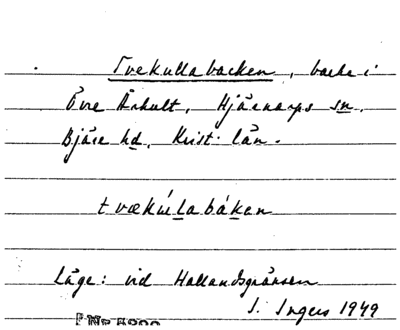 Tvekullabacken, backe i
Övre Århult, Hjärnarps sn.
Bjäre hd, Krist. län.
tvækúlabákan
Läge: vid Hallandsgränsen
I. Ingers 1949